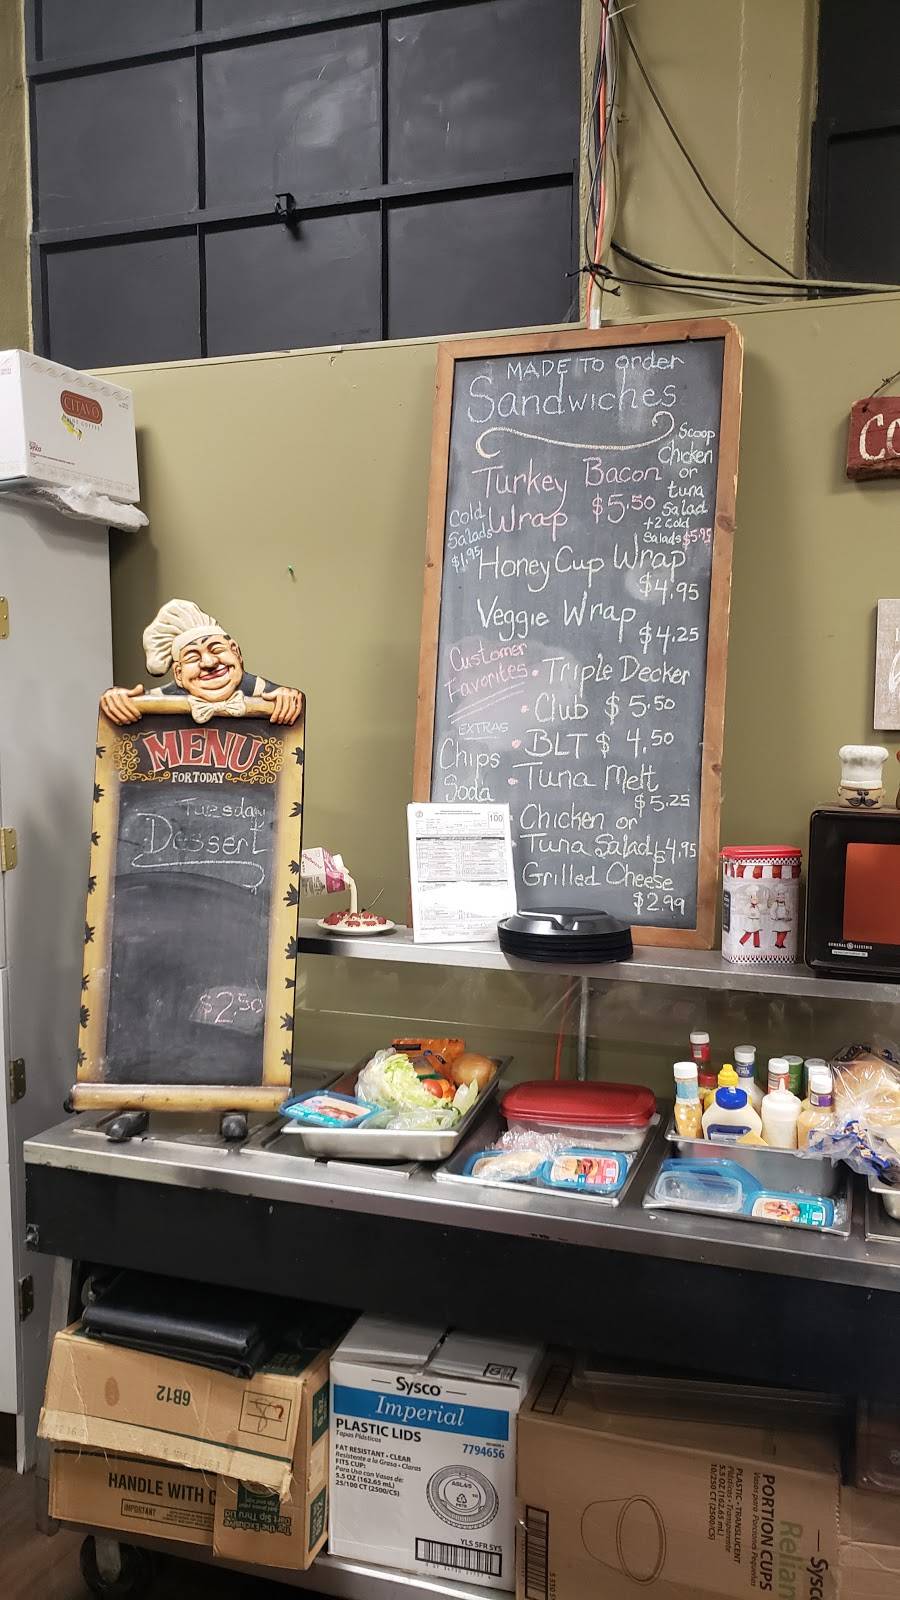 MADE TO order
Sandwiches
Scoop
Chicken
or
tuna
Salad
+2 cold
Salads $5.95
Turkey Bacon
Wrap $5.50
Cold
Salads
$1.95
Honey Cup Wrap
$4.95
Veggie Wrap
$4.25
Customer
Favorites
• Triple Decker
• Club $5.50
• BLT $4.50
• Tuna Melt
$5.25
Chicken or
Tuna Salad $4.95
Grilled Cheese
$2.99
EXTRAS
Chips
Soda
MENU
FOR TODAY
Tuesday
Dessert
$2.50
CITAVO
100
CO
GENERAL ELECTRIC
6B12
HANDLE WITH C
IMPORTANT
Sysco
Imperial
PLASTIC LIDS
Tapas Plásticas
7794656
FAT RESISTANT • CLEAR
Resistente a la Grasa • Claras
FITS CUP:
Para Uso con Vasos de:
5.5 OZ (162.65 mL)
25/100 CT (2500/CS)
YLS 5FR SYS
Sysco
Relian
PORTION CUPS
Vasos para Porciones Pequeñas
PLASTIC • TRANSLUCENT
Plásticos • Transparente
5.5 OZ (162.65 mL)
10/250 CT (2500/CS)